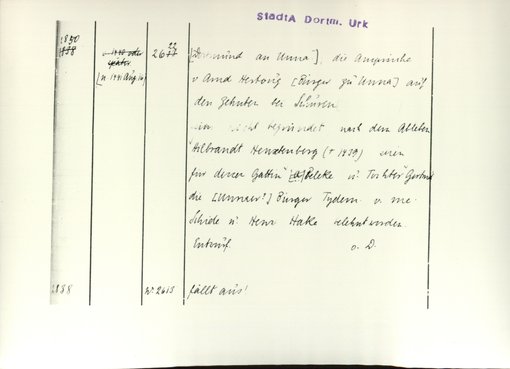 StadtA Dortm. Urk
1850
v. 1440 oder
später
[n. 1441 Aug 16]
26
[Dortmund an Unna], die Ansprüche
v Arnd Hertoig [Bürger zu Unna] auf
den Zehnten bei Schüren
nicht begründet nach dem Ableben
Hilbrandt Henxtenberg († 1439) seien
für deren Gattin Beleke u. Tochter Gertrud
die [Unnaer?] Bürger Tydem v.
u Henr Hake belehnt worden.
Entwurf. o. D.
1858
Nr 2615
fällt aus!